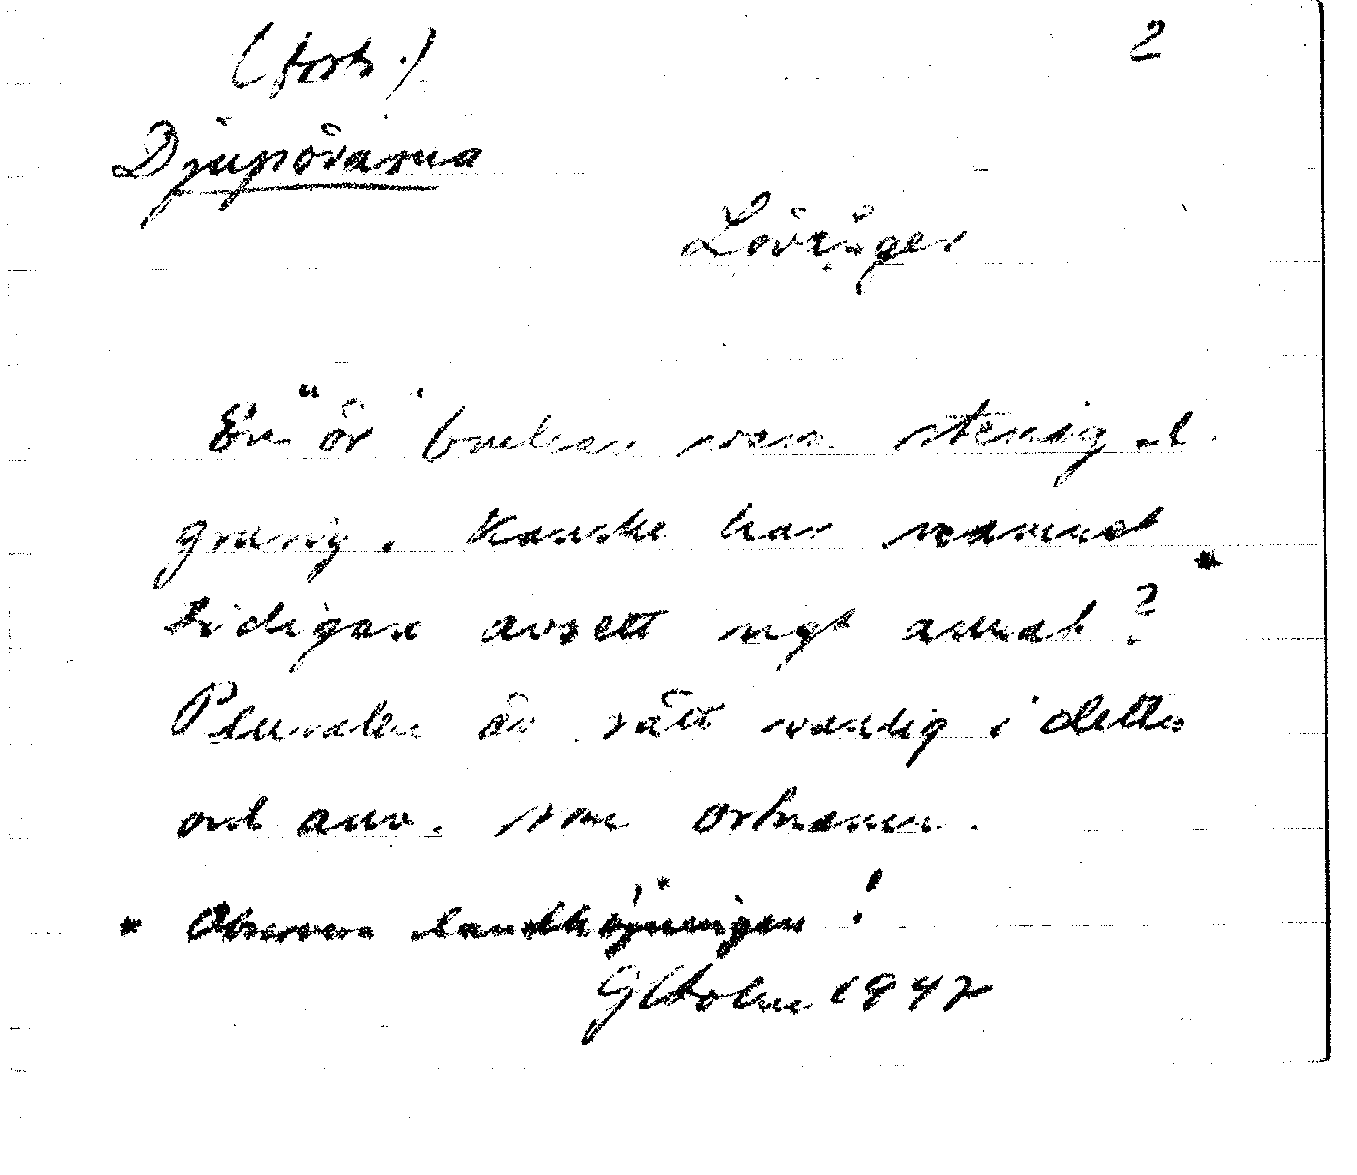 (forts.)
2
Djupörarna
Lövånger
En "ör" brukar vara stenig el.
grusig. Kanske har namnet
tidigare avsett ngt annat? *
Pluralen är rätt vanlig i detta
ord anv. som ortnamn.
* Observera landhöjningen!
GHolm 1947